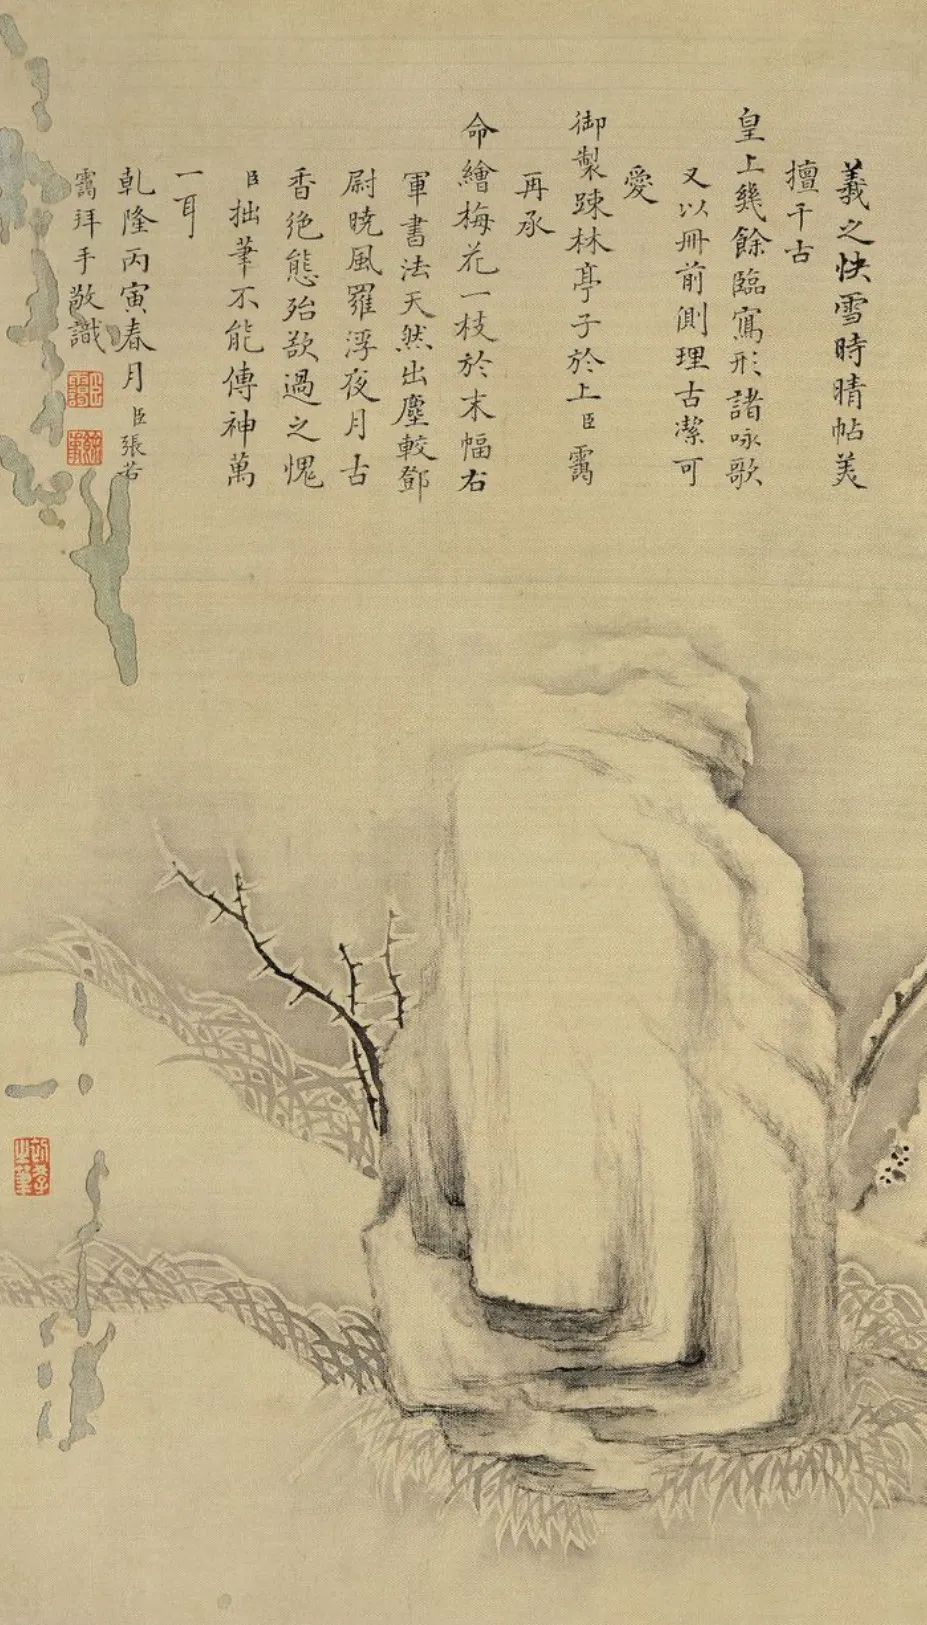 羲之快雪時晴帖美
擅千古
皇上幾餘臨寫形諸咏歌
又以冊前側理古潔可
愛
御製踈林亭子於上臣靄
再承
命繪梅花一枝於末幅右
軍書法天然出塵較鄧
尉曉風羅浮夜月古
香絶態殆欲過之愧
臣拙筆不能傳神萬
一耳
乾隆丙寅春月臣張若
靄拜手敬識
臣靄